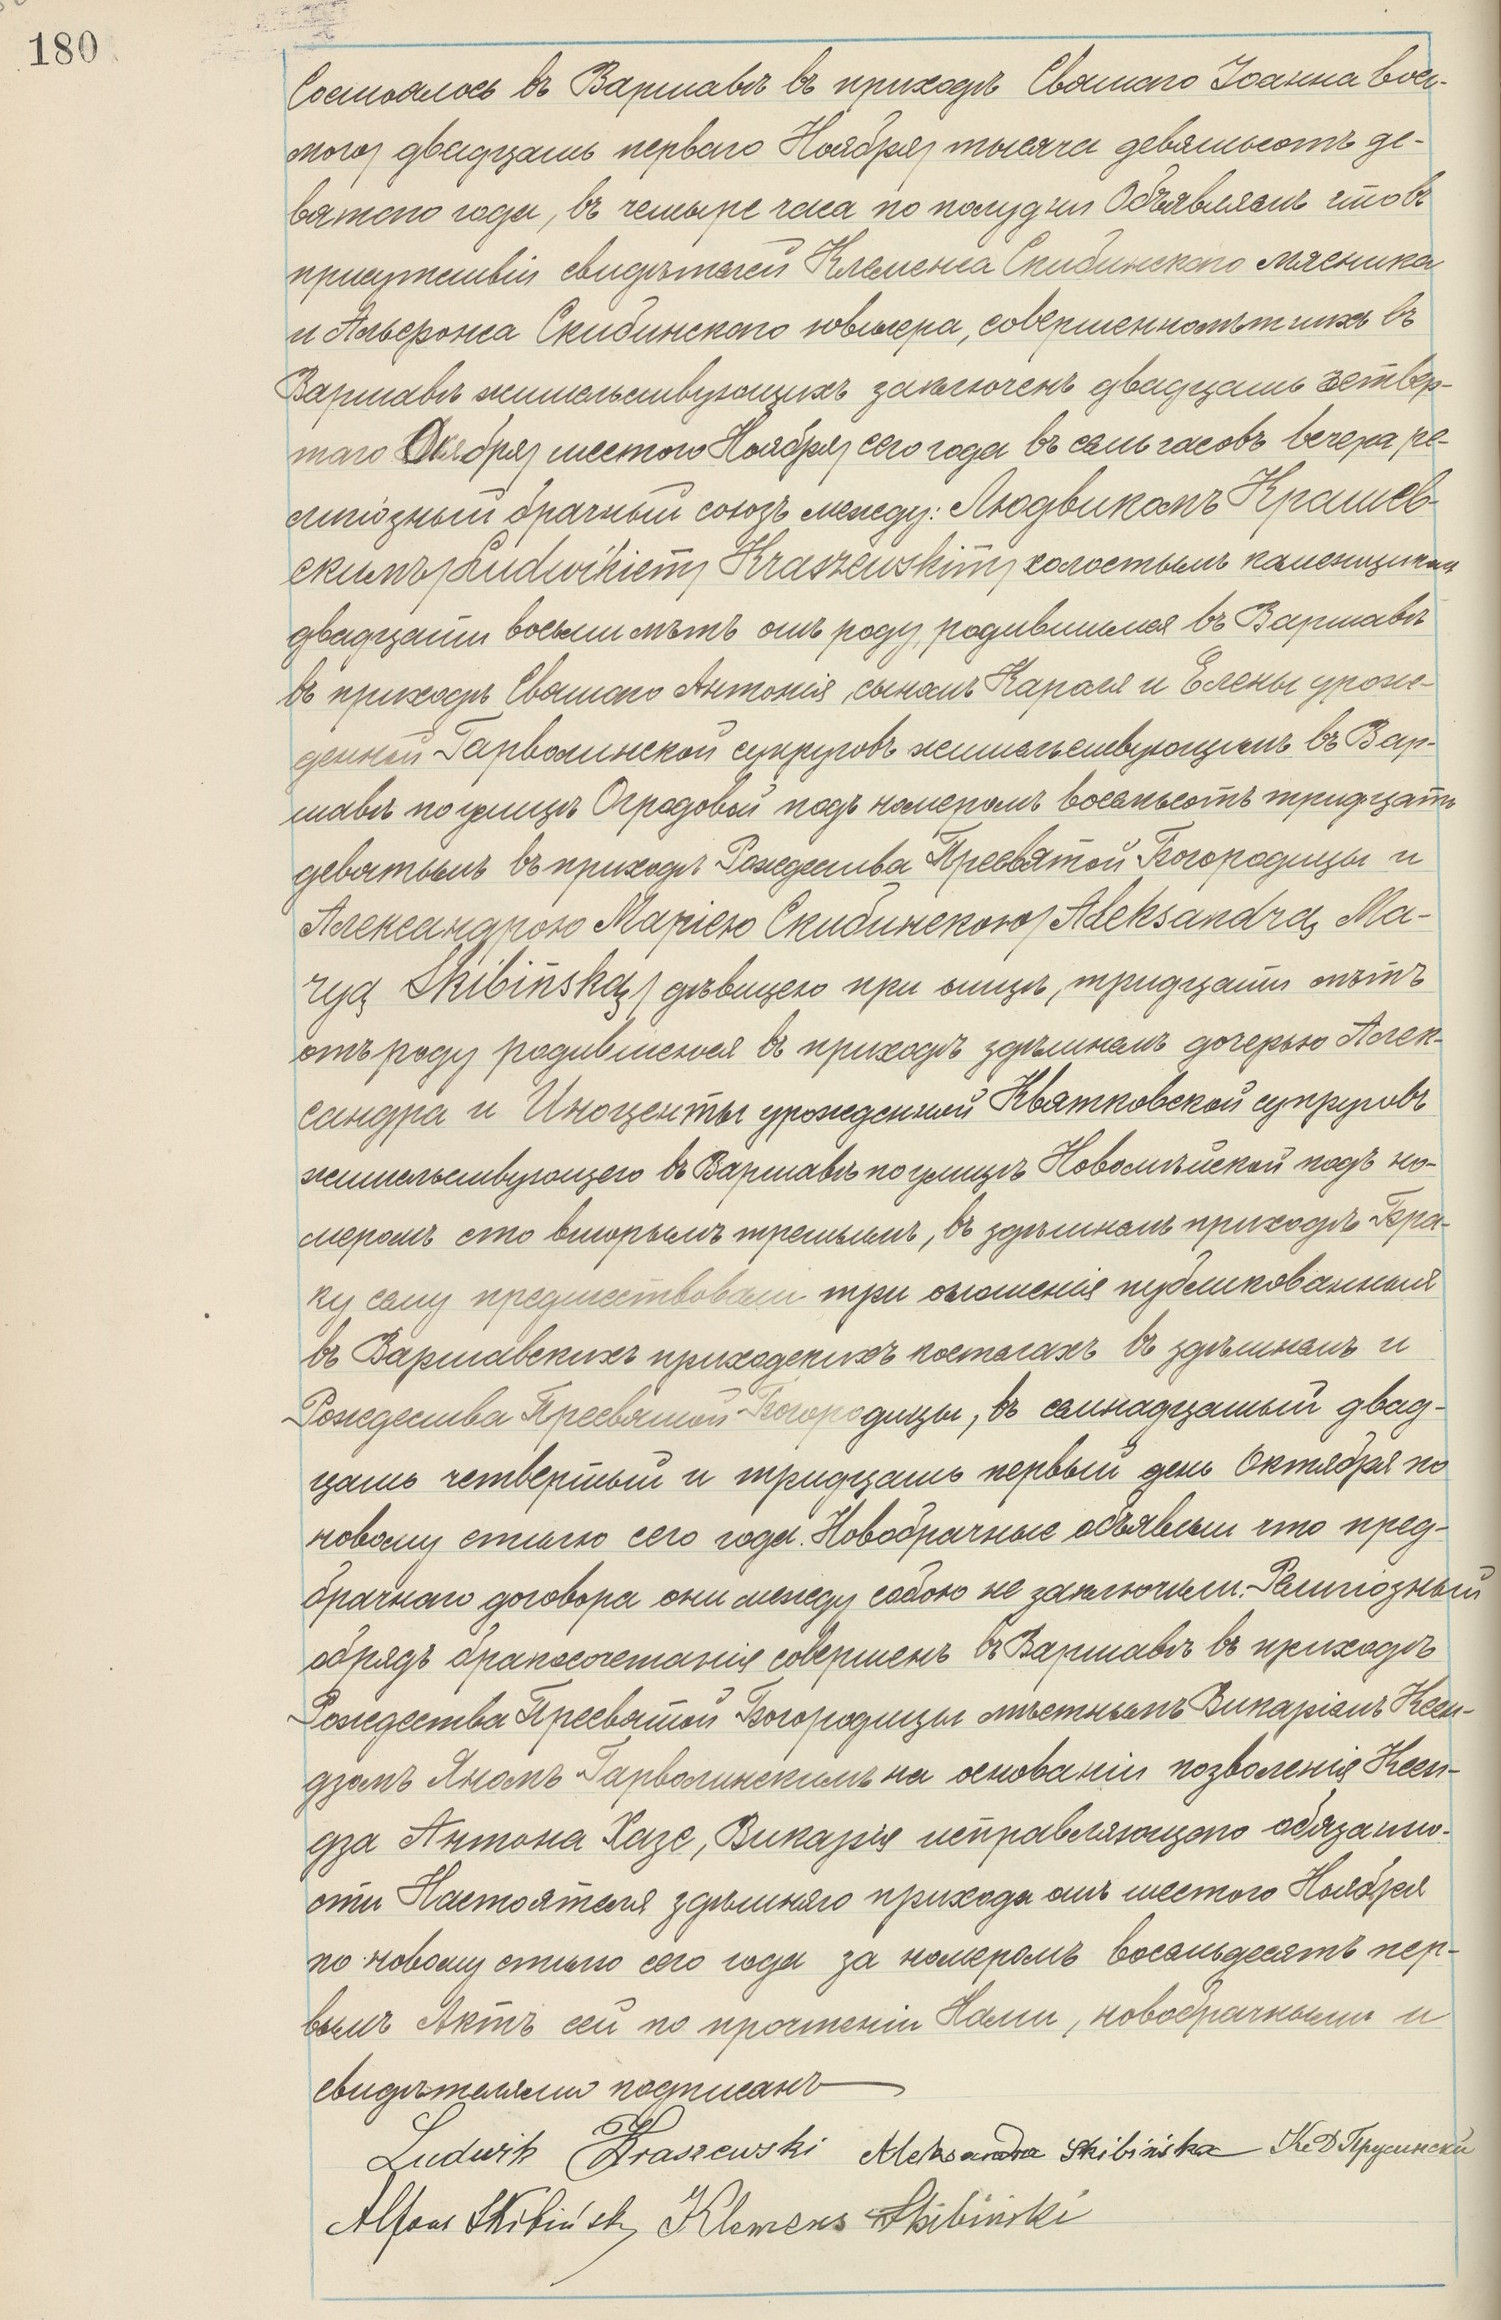 180
Состоялось въ Варшавѣ въ приходѣ Святаго Іоанна вось-
мого/ двадцать перваго Ноября/ тысяча девятьсотъ де-
вятаго года, въ четыре часа по полудни Объявляемъ что въ
присутствіи свидѣтелей Клеменса Скибинскаго мясника
и Альфонса Скибинскаго ювелира, совершеннолѣтнихъ въ
Варшавѣ жительствующихъ заключенъ двадцать четвер-
таго Октября/ шестого Ноября/ сего года въ семь часовъ вечера ре-
лигіозный брачный союзъ между: Людвикомъ Крашев-
скимъ/Ludwikiem/ Kraszewskim/ холостымъ каменщикомъ
двадцати восьми лѣтъ отъ роду, родившимся въ Варшавѣ
въ приходѣ Святаго Антонія, сыномъ Кароля и Елены урож-
денной Гарволинской супруговъ жительствующимъ въ Вар-
шавѣ по улицѣ Огродовой подъ номеромъ восемьсотъ тридцать
девятымъ въ приходѣ Рождества Пресвятой Богородицы и
Александрою Маріею Скибинскою/ Aleksandrą Ma-
ryą Skibińską/ дѣвицею при отцѣ, тридцати лѣтъ
отъ роду родившеюся въ приходѣ здѣшнемъ дочерью Алек-
сандра и Иноценты урожденной Квятковской супруговъ
жительствующего въ Варшавѣ по улицѣ Новомѣйской подъ но-
меромъ сто вторымъ третьимъ, въ здѣшнемъ приходѣ Бра-
ку сему предшествовали три оглашенія публикованныя
въ Варшавскихъ приходскихъ костелахъ въ здѣшнемъ и
Рождества Пресвятой Богородицы, въ семнадцатый двад-
цать четвертый и тридцать первый день Октября по
новому стилю сего года. Новобрачные объявили что пред-
брачнаго договора они между собою не заключили. Религіозный
обрядъ бракосочетанія совершенъ въ Варшавѣ въ приходѣ
Рождества Пресвятой Богородицы мѣстнымъ Викаріемъ Ксен-
дзомъ Яномъ Гарволинскимъ на основаніи позволенія Ксен-
дза Антона Хазе, Викарія исправляющаго обязанно-
сти Настоятеля здѣшняго прихода отъ шестого Ноября
по новому стилю сего года за номеромъ восемьдесятъ пер-
вымъ Актъ сей по прочтеніи Нами, новобрачными и
свидѣтелями подписанъ
Ludwik Kraszewski Aleksandra Skibińska Кс Д Прусински
Alfons Skibiński Klemens Skibiński